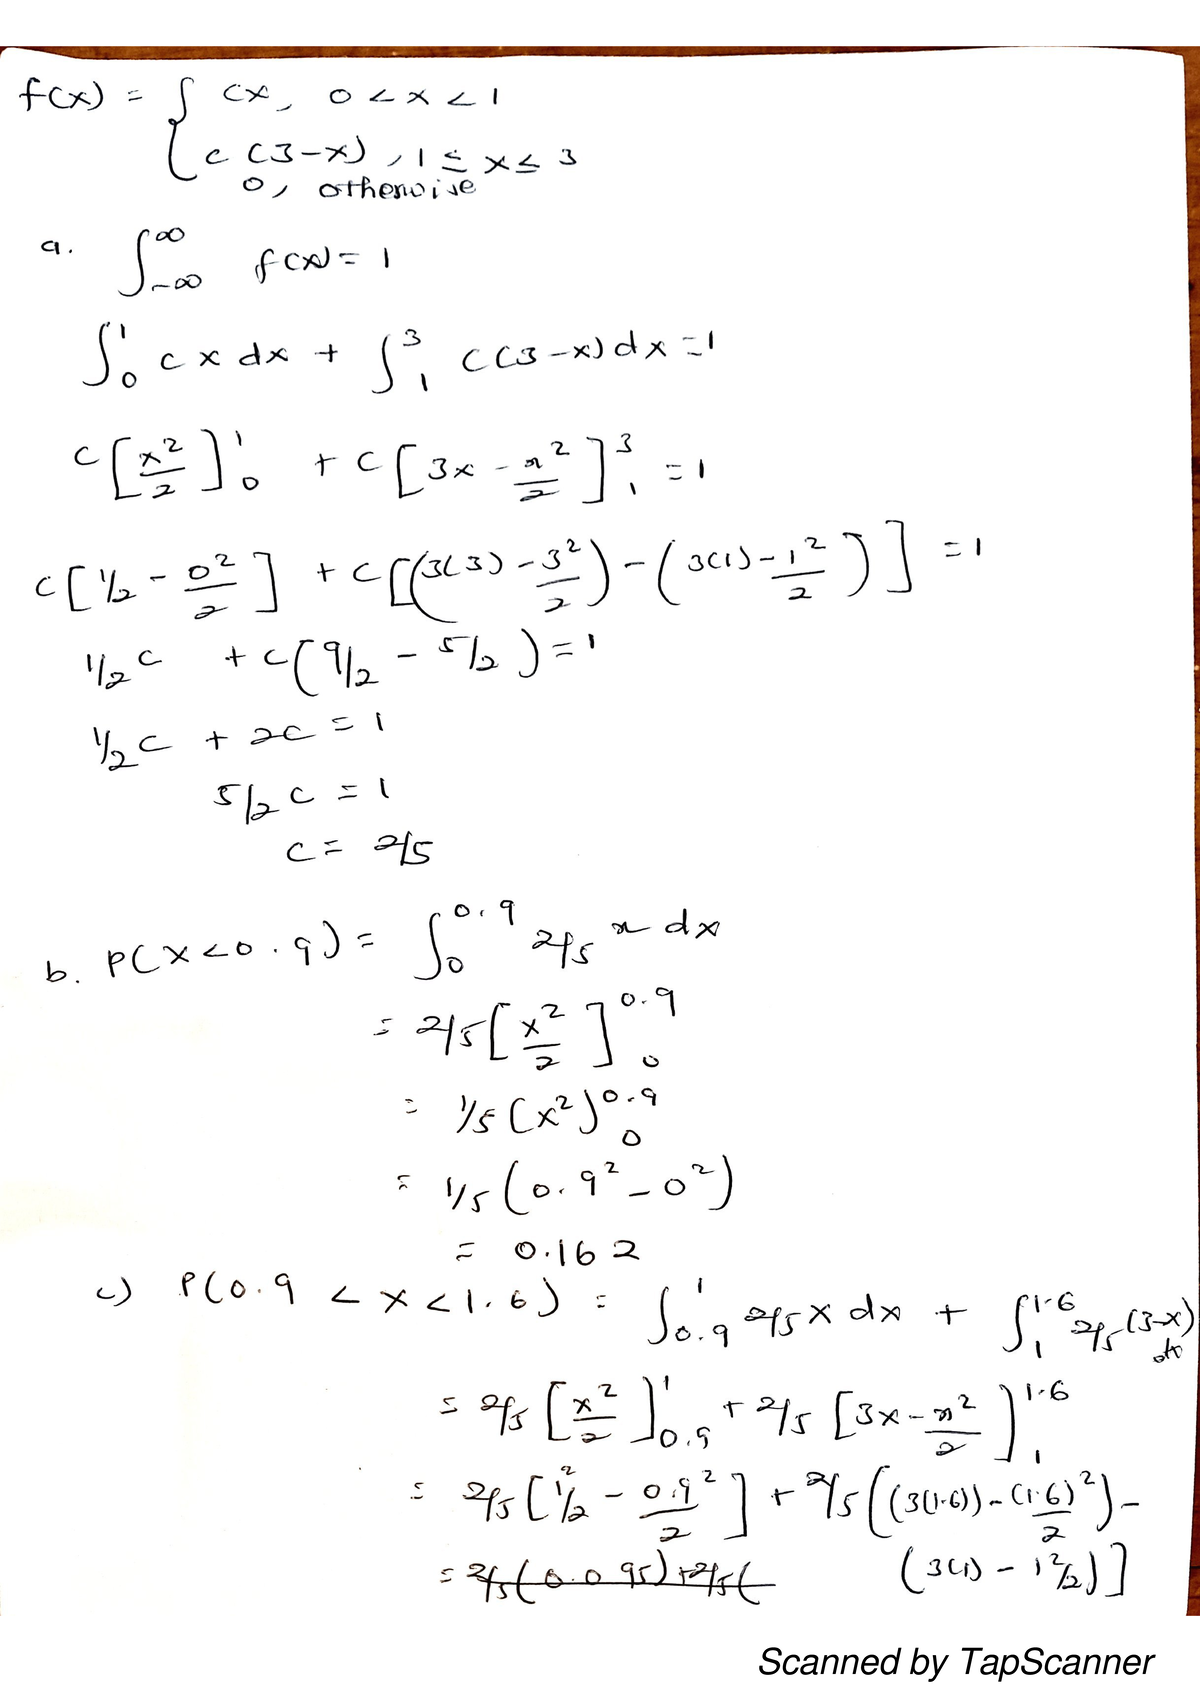 f(x) = { cx, 0 < x < 1
c (3-x), 1 ≤ x ≤ 3
0, otherwise
a. ∫_{-∞}^{∞} f(x) = 1
∫_0^1 c x dx + ∫_1^3 c(3-x) dx = 1
c[x²/2]_0^1 + c[3x - x²/2]_1^3 = 1
c[1/2 - 0²/2] + c[(3(3) - 3²/2) - (3(1) - 1²/2)] = 1
1/2 c + c(9/2 - 5/2) = 1
1/2 c + 2c = 1
5/2 c = 1
c = 2/5
b. P(X < 0.9) = ∫_0^{0.9} 2/5 x dx
= 2/5 [x²/2]_0^{0.9}
= 1/5 (x²)_0^{0.9}
= 1/5 (0.9² - 0²)
= 0.162
c) P(0.9 < x < 1.6) = ∫_{0.9}^1 2/5 x dx + ∫_1^{1.6} 2/5 (3-x) dx
= 2/5 [x²/2]_{0.9}^1 + 2/5 [3x - x²/2]_1^{1.6}
= 2/5 [1²/2 - 0.9²/2] + 2/5 ((3(1.6)) - (1.6)²/2) -
(3(1) - 1²/2)]
= 2/5 (0.095) + 2/5 (
Scanned by TapScanner